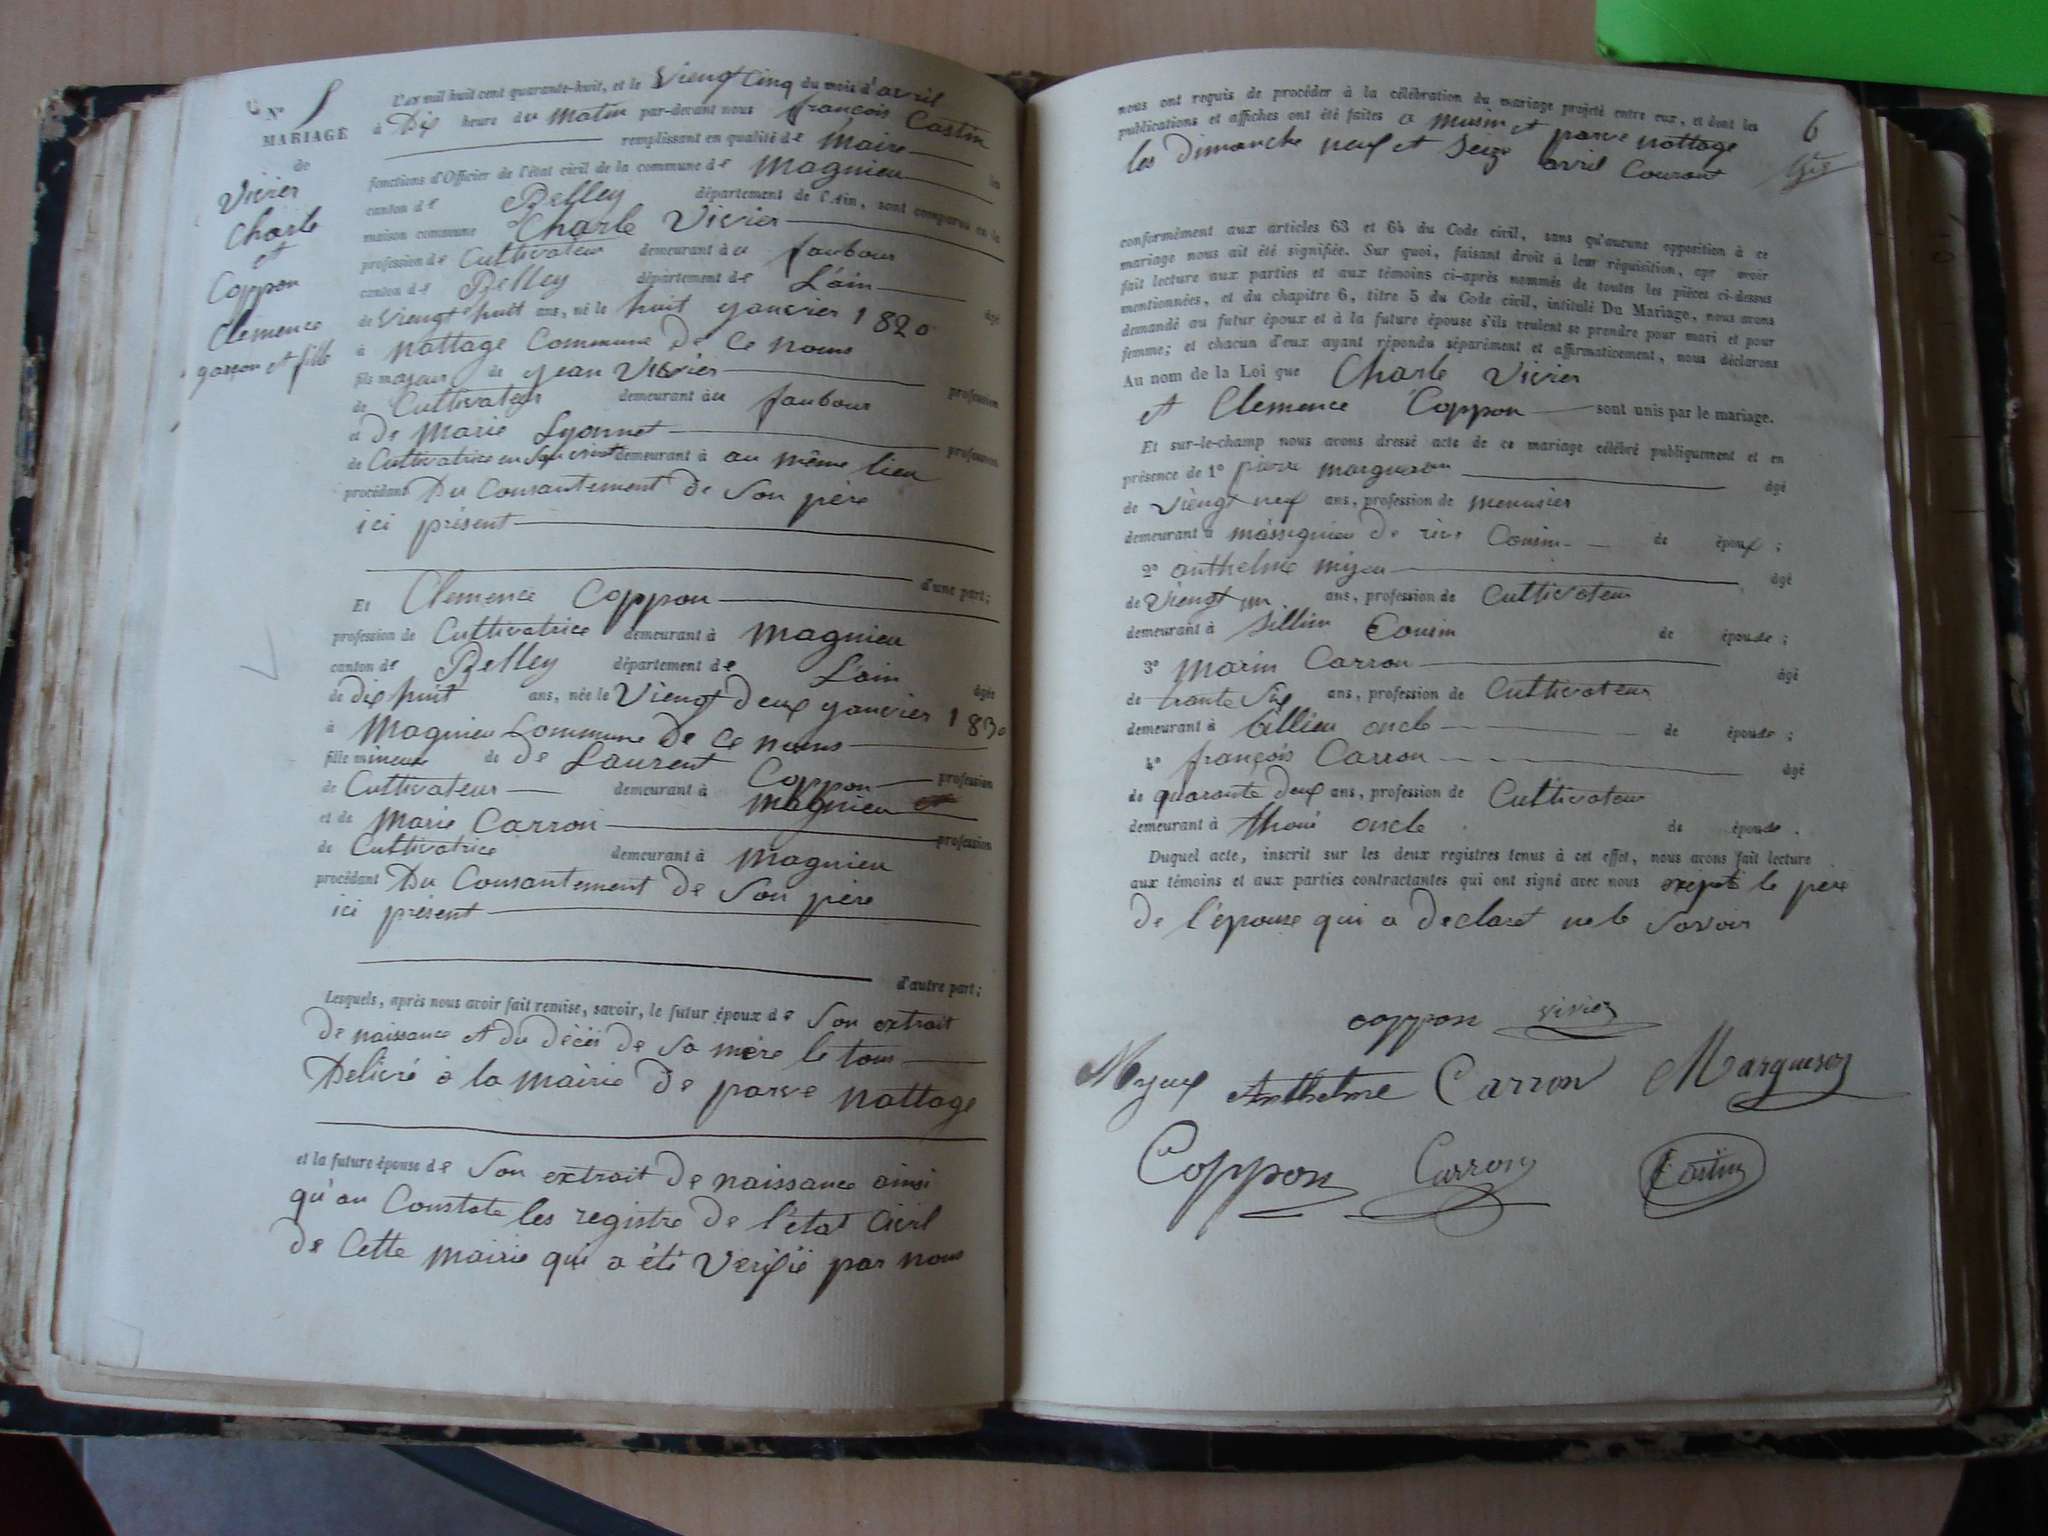 N°
MARIAGE
de
Vivier
Charle
et
Coppon
Clemence
garçon et fille
L'an mil huit cent quarante-huit, et le Viengt Cinq du mois d'avril
à Dix heure du Matin par-devant nous françois Castin
remplissant en qualité de Maire les
fonctions d'Officier de l'état civil de la commune de Magnieu
canton de Belley département de l'Ain, sont comparus en la
maison commune Charle Vivier
profession de Cultivateur demeurant au faubour
canton de Belley département de L'ain âgé
de Viengt huit ans, né le huit yanvier 1820
à nattage Commune de Ce noms
fils majeur de yean Vivier profession
de Cultivateur demeurant au faubour
et de Marie Lyonnet profession
de Cultivatrice en Son vivant demeurant à au même lieu
procédant Du Consantement de Son père
ici présent
d'une part;
Et Clemence Coppon
profession de Cultivatrice demeurant à Magnieu
canton de Belley département de L'ain âgée
de dix huit ans, née le Viengt deux yanvier 1830
à Magnieu Commune de Ce noms
fille mineure de de Laurent Coppon profession
de Cultivateur demeurant à Magnieu
et de Marie Carron profession
de Cultivatrice demeurant à Magnieu
procédant Du Consantement de Son père
ici présent
d'autre part;
Lesquels, après nous avoir fait remise, savoir, le futur époux de Son extrait
de naissance et du décès de Sa mère le tous
Delivré à la mairie de parve nattage
et la future épouse de Son extrait de naissance ainsi
qu'au Constate les registre de l'état Civil
de Cette mairie qui a été Verifié par nous
6
nous ont requis de procéder à la célébration du mariage projeté entre eux, et dont les
publications et affiches ont été faites a musin et parve nattage
les dimanche neuf et Seize avril Courant
conformément aux articles 63 et 64 du Code civil, sans qu'aucune opposition à ce
mariage nous ait été signifiée. Sur quoi, faisant droit à leur réquisition, apr avoir
fait lecture aux parties et aux témoins ci-après nommés de toutes les pièces ci-dessus
mentionnées, et du chapitre 6, titre 5 du Code civil, intitulé Du Mariage, nous avons
demandé au futur époux et à la future épouse s'ils veulent se prendre pour mari et pour
femme; et chacun d'eux ayant répondu séparément et affirmativement, nous déclarons
Au nom de la Loi que Charle Vivier
et Clemence Coppon sont unis par le mariage.
Et sur-le-champ nous avons dressé acte de ce mariage célébré publiquement et en
présence de 1° pierre margueron âgé
de Viengt neuf ans, profession de menuisier
demeurant à massignieu de rive Cousin de époux;
2° anthelme myeu âgé
de Viengt un ans, profession de Cultivateur
demeurant à Sillieu Cousin de épouse;
3° Marin Carron âgé
de trante Six ans, profession de Cultivateur
demeurant à Cillieu oncle de épouse;
4° françois Carron âgé
de quarante deux ans, profession de Cultivateur
demeurant à thoui oncle de épouse.
Duquel acte, inscrit sur les deux registres tenus à cet effet, nous avons fait lecture
aux témoins et aux parties contractantes qui ont signé avec nous exepté le père
de l'épouse qui a declaret ne le Savoir
coppon vivier
Myeux Anthelme Carron Margueron
Coppon Carron Castin